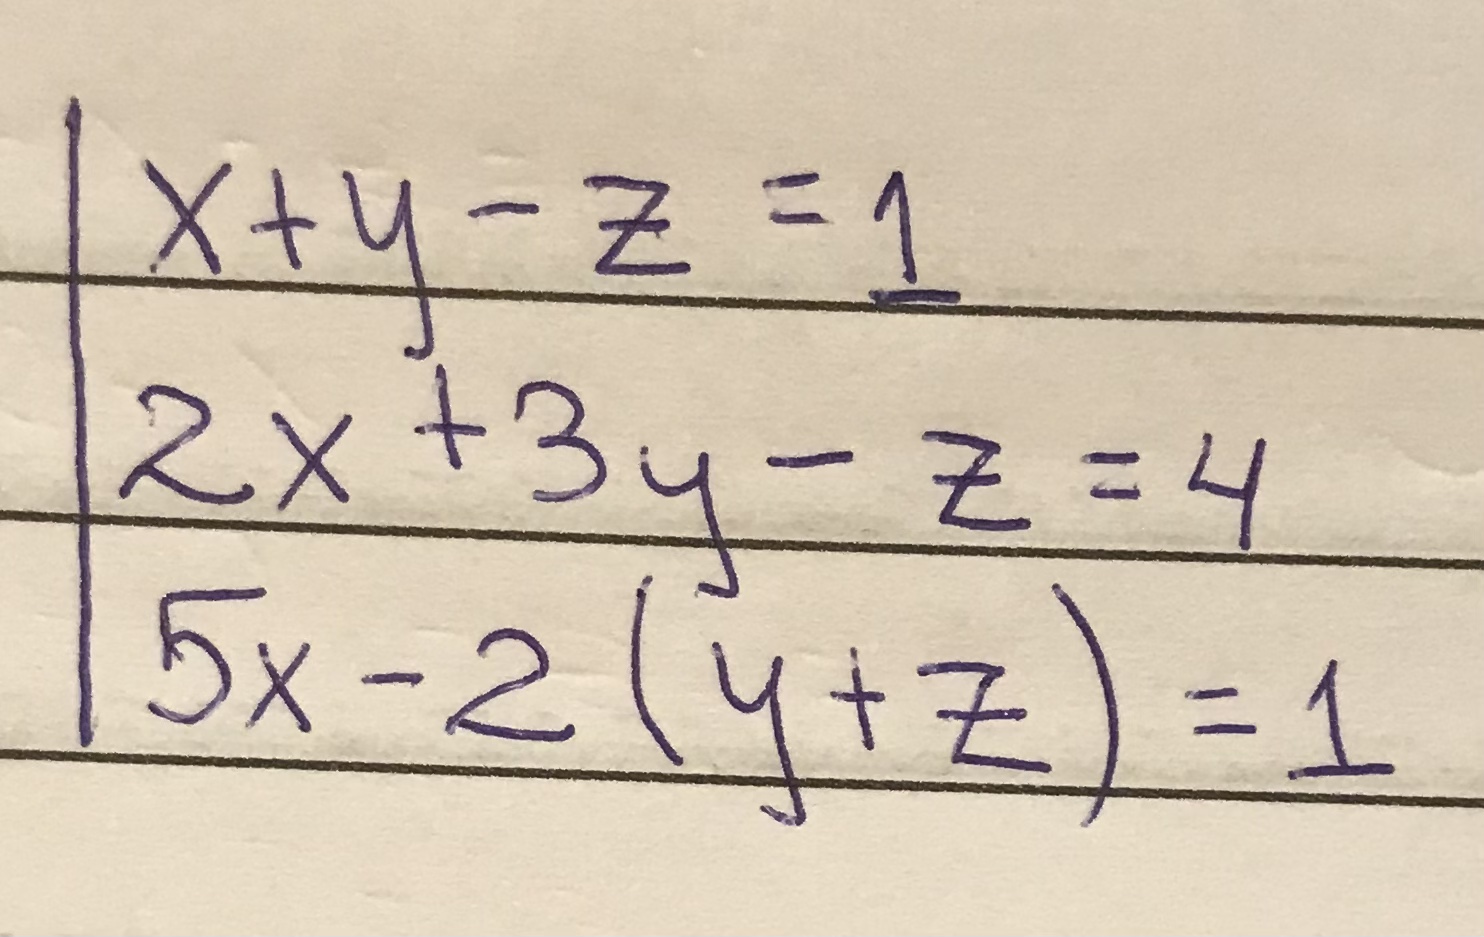 x+y-z=1
2x+3y-z=4
5x-2(y+z)=1